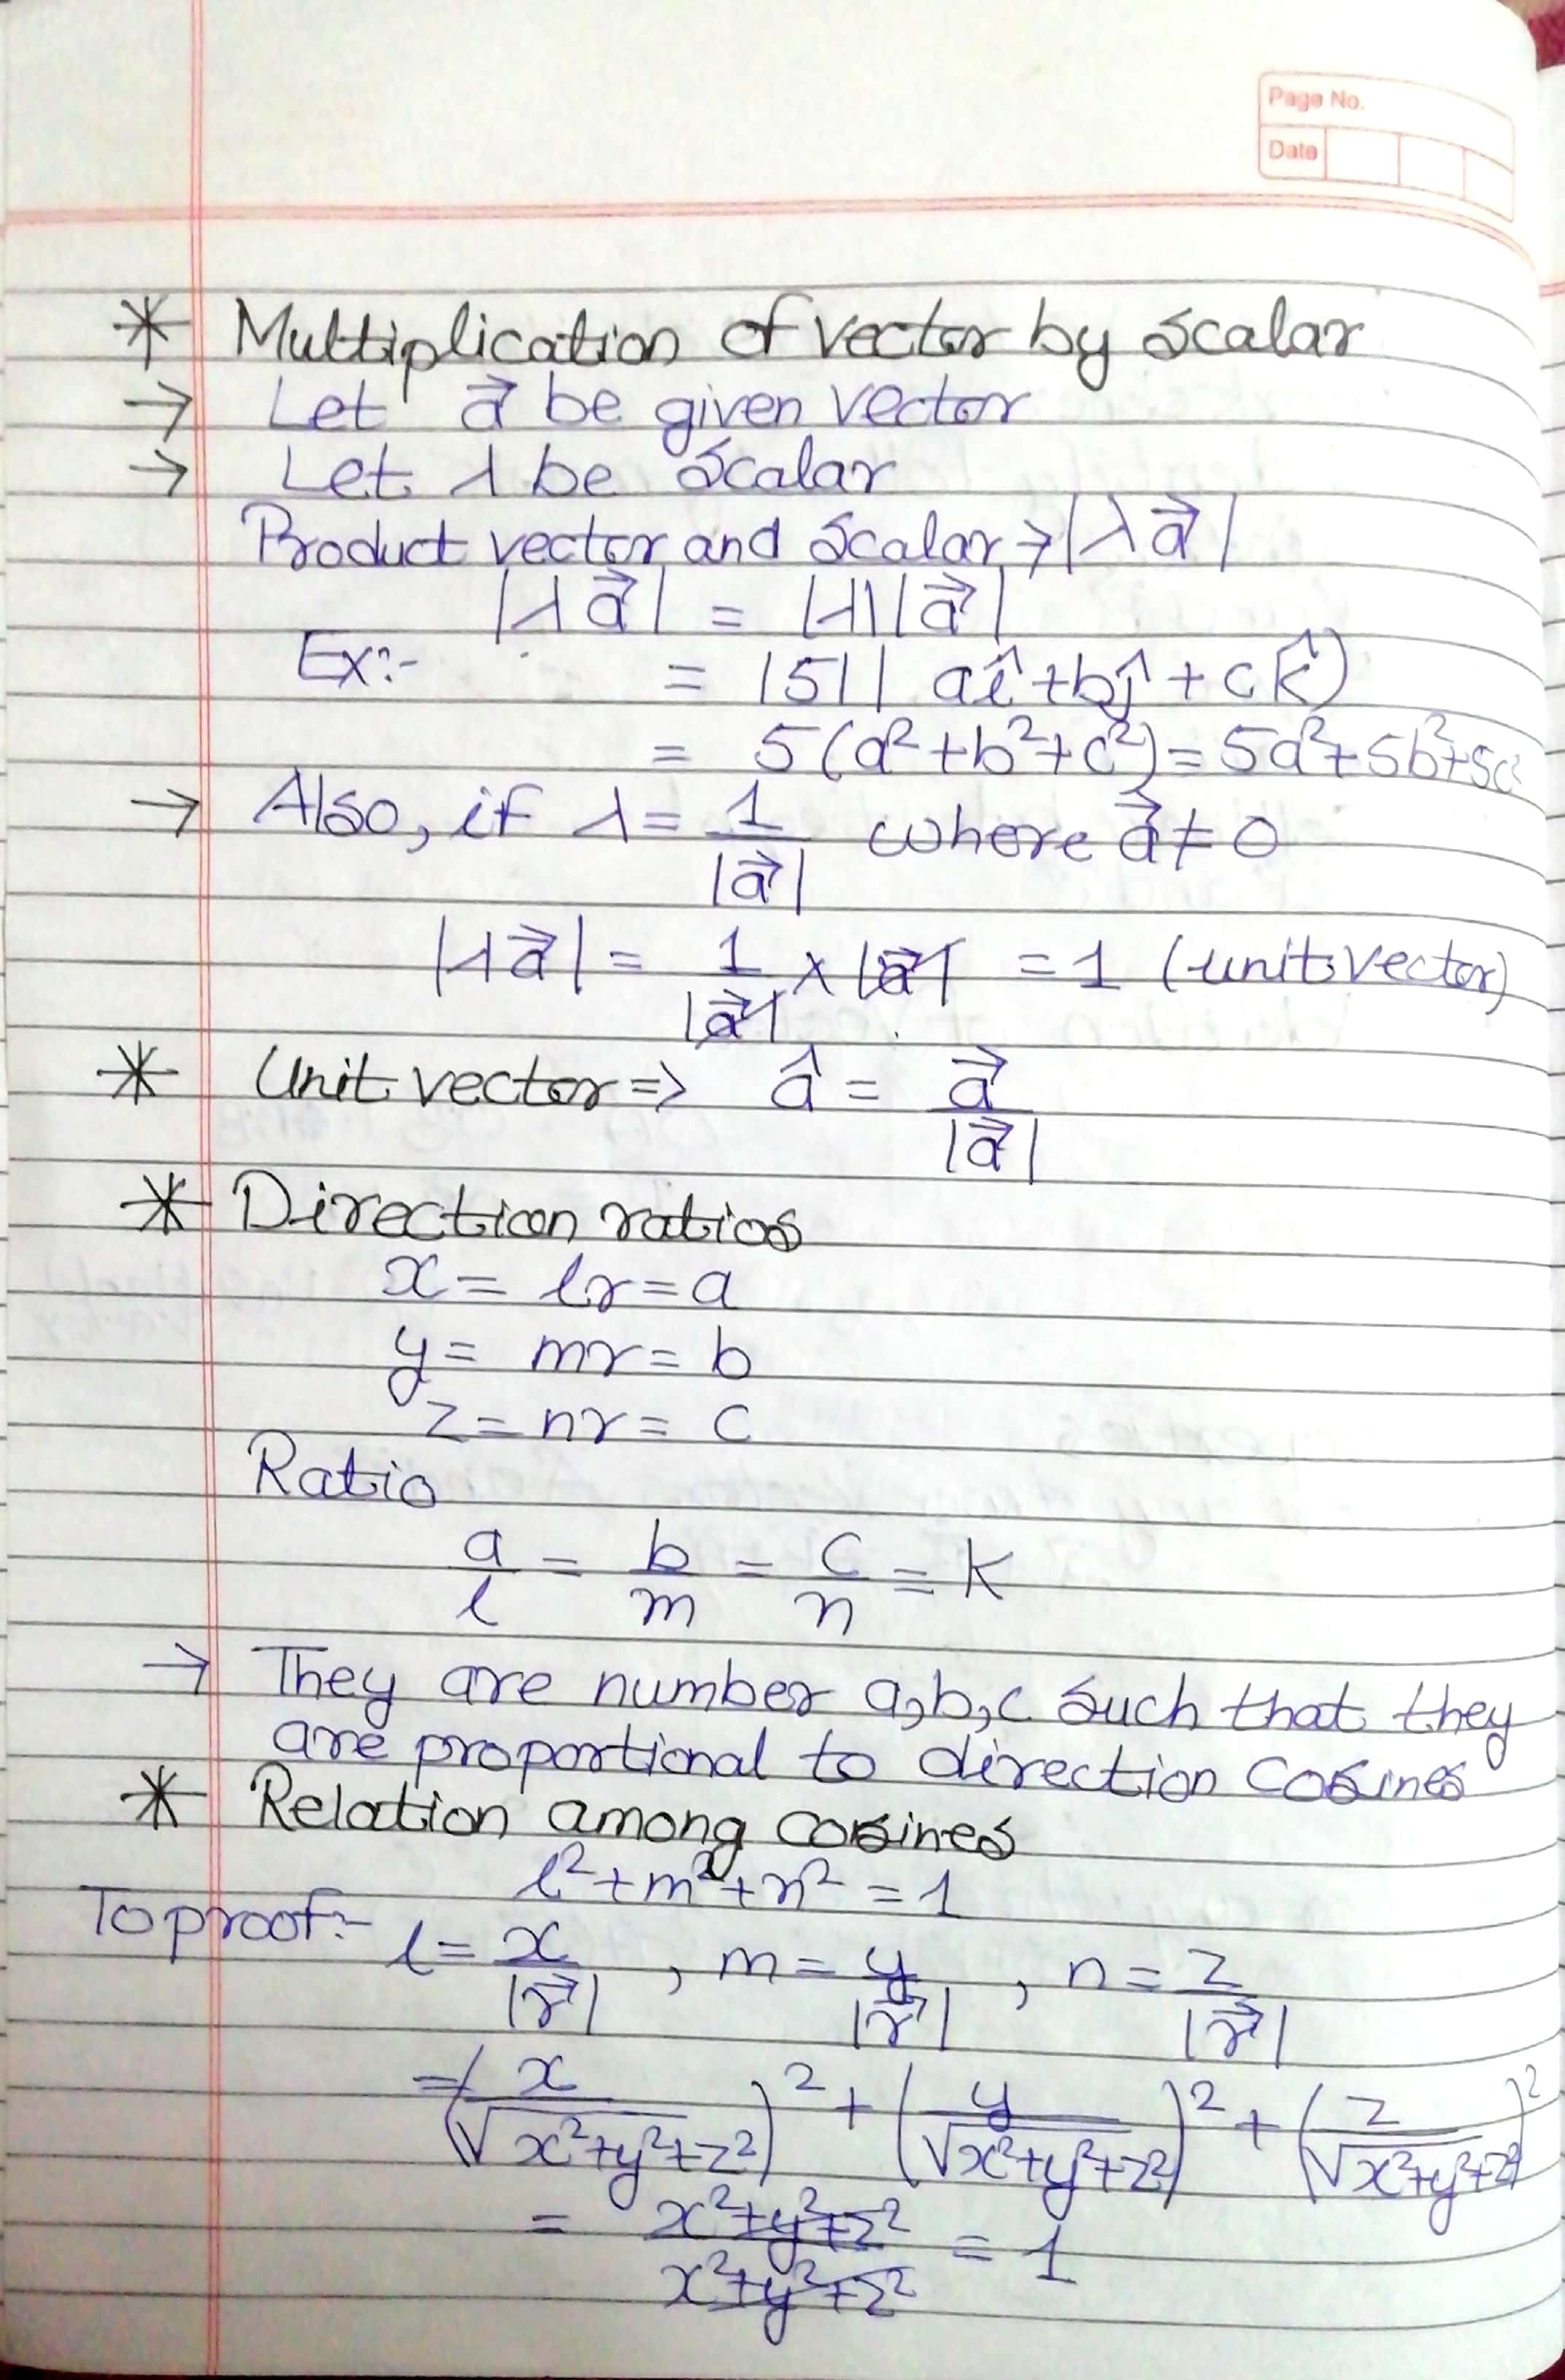 Page No.
Date
* Multiplication of vector by scalar
→ Let a⃗ be given vector
→ Let λ be scalar
Product vector and scalar → |λa⃗|
|λa⃗| = |λ||a⃗|
Ex:- = |5|| aî+bĵ+ck̂)
= 5(a²+b²+c²) = 5a²+5b²+5c²
→ Also, if λ = 1/|a⃗| where a⃗ ≠ 0
|λa⃗| = 1/|a⃗| × |a⃗| = 1 (unit vector)
* Unit vector => â = a⃗/|a⃗|
* Direction ratios
x = lr = a
y = mr = b
z = nr = c
Ratio
a/l = b/m = c/n = K
→ They are number a,b,c such that they
are proportional to direction cosines
* Relation among cosines
l²+m²+n² = 1
To proof:- l = x/|r⃗| , m = y/|r⃗| , n = z/|r⃗|
= (x/√x²+y²+z²)² + (y/√x²+y²+z²)² + (z/√x²+y²+z²)²
= x²+y²+z²/x²+y²+z² = 1